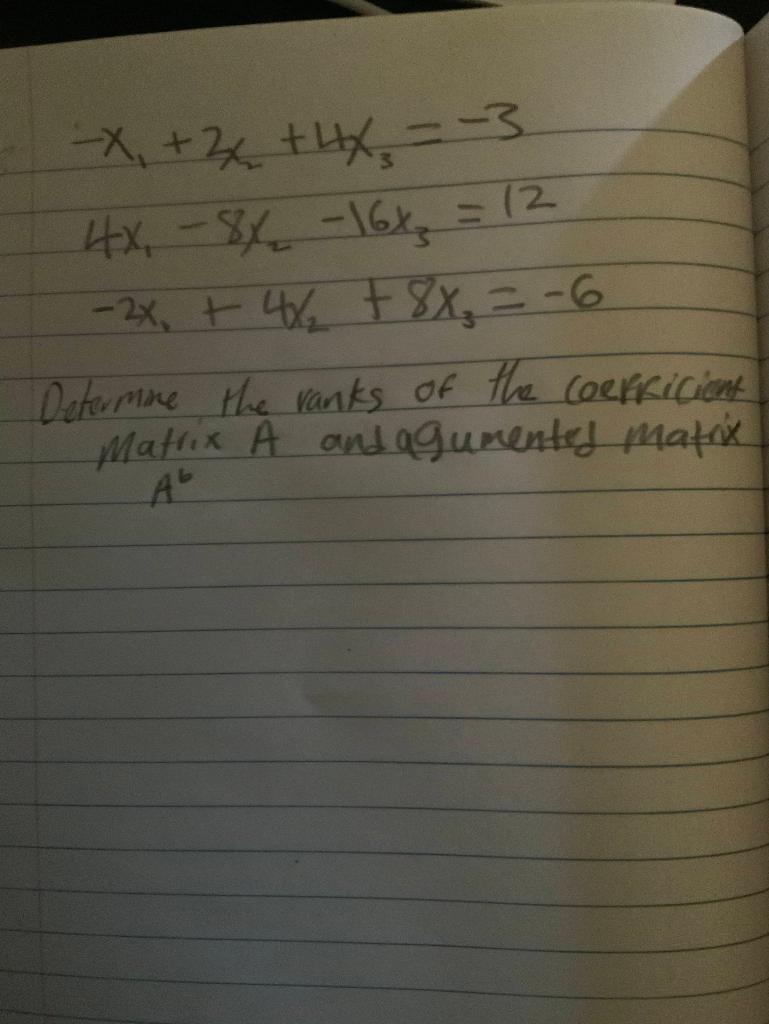 -x₁ + 2x₂ + 4x₃ = -3
4x₁ - 8x₂ - 16x₃ = 12
-2x₁ + 4x₂ + 8x₃ = -6
Determine the ranks of the coefficient
Matrix A and agumented matrix
Aᵇ